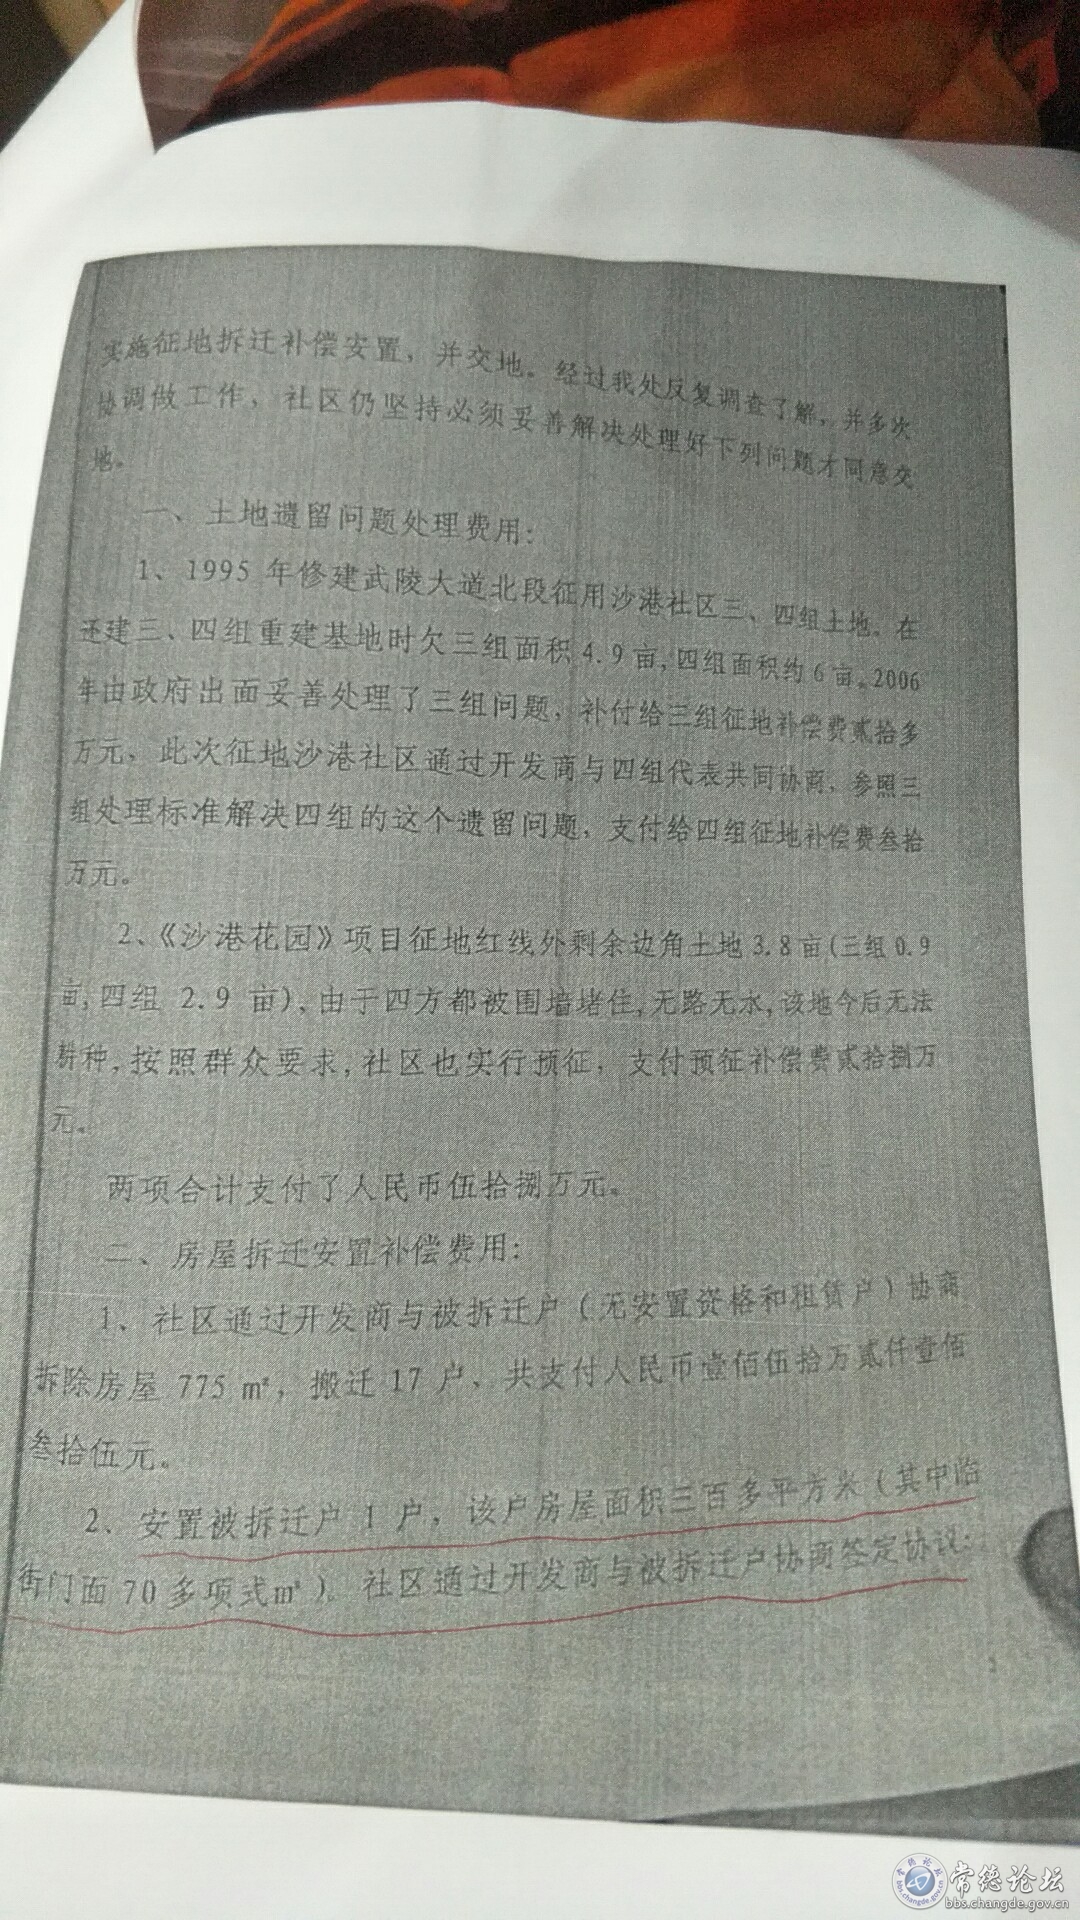 实施征地拆迁补偿安置，并交地。经过我处反复调查了解，并多次
协调做工作，社区仍坚持必须妥善解决处理好下列问题才同意交
地。
一、土地遗留问题处理费用：
1、1995 年修建武陵大道北段征用沙港社区三、四组土地。在
还建三、四组重建基地时欠三组面积 4.9 亩，四组面积约 6 亩。2006
年由政府出面妥善处理了三组问题，补付给三组征地补偿费贰拾多
万元，此次征地沙港社区通过开发商与四组代表共同协商，参照三
组处理标准解决四组的这个遗留问题，支付给四组征地补偿费叁拾
万元。
2、《沙港花园》项目征地红线外剩余边角土地 3.8 亩（三组 0.9
亩，四组 2.9 亩）、由于四方都被围墙堵住，无路无水，该地今后无法
耕种，按照群众要求，社区也实行预征，支付预征补偿费贰拾捌万
元。
两项合计支付了人民币伍拾捌万元。
二、房屋拆迁安置补偿费用：
1、社区通过开发商与被拆迁户（无安置资格和租赁户）协商
拆除房屋 775 ㎡，搬迁 17 户、共支付人民币壹佰伍拾万贰仟壹佰
叁拾伍元。
2、安置被拆迁户 1 户，该户房屋面积三百多平方米（其中临
街门面 70 多项式㎡）。社区通过开发商与被拆迁户协商签定协议：
常德论坛
bbs.changde.gov.cn